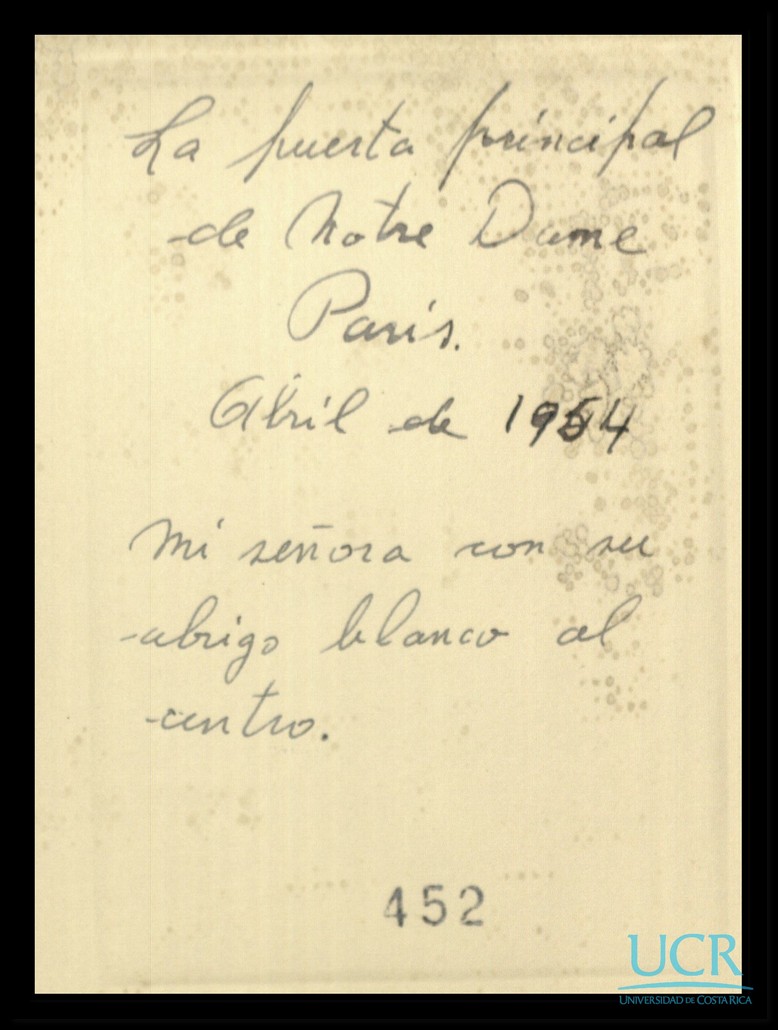 La puerta principal
de Notre Dame
París.
Abril de 1954
Mi señora con su
abrigo blanco al
centro.
452
UCR
UNIVERSIDAD DE COSTA RICA